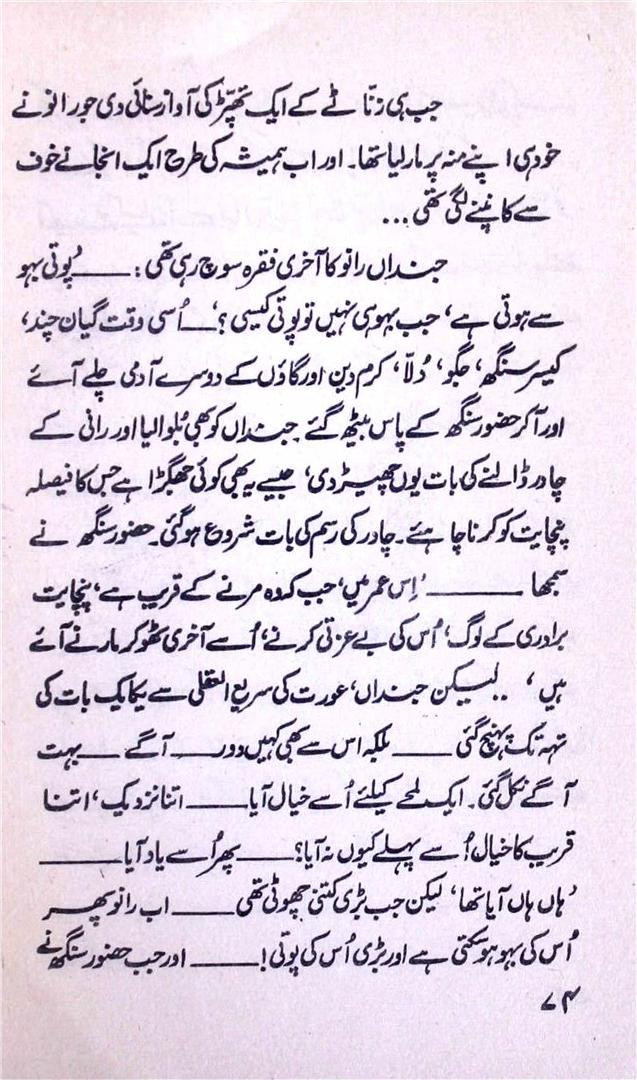 جب ہی زنّاٹے کے ایک تھپّڑ کی آواز سنائی دی جو رانو نے
خود ہی اپنے منہ پر مار لیا تھا۔ اور اب ہمیشہ کی طرح ایک انجانے خوف
سے کانپنے لگی تھی ...
جنداں رانو کا آخری فقرہ سوچ رہی تھی: ــــــ 'پوتی بہو
سے ہوتی ہے، جب بہو ہی نہیں تو پوتی کیسی؟' ــــــ اُسی وقت گیان چند،
کیسر سنگھ، جگو، دُلّا، کرم دین اور گاؤں کے دوسرے آدمی چلے آئے
اور آ کر حضور سنگھ کے پاس بیٹھ گئے۔ جنداں کو بھی بُلوا لیا اور رانی کے
چادر ڈالنے کی بات یوں چھیڑ دی، جیسے یہ بھی کوئی جھگڑا ہے جس کا فیصلہ
پنچایت کو کرنا چاہئے۔ چادر کی رسم کی بات شروع ہو گئی۔ حضور سنگھ نے
سمجھا ــــــ 'اِس عمر میں، جب کہ وہ مرنے کے قریب ہے، پنچایت
برادری کے لوگ، اُس کی بے عزتی کرنے، اُسے آخری ٹھوکر مارنے آئے
ہیں' .. لیکن جنداں، عورت کی سریع العقلی سے یکایک بات کی
تہہ تک پہنچ گئی ــــــ بلکہ اس سے بھی کہیں دور ــــــ آگے ــــــ بہت
آگے نکل گئی۔ ایک لمحے کیلئے اُسے خیال آیا ــــــ اتنا نزدیک، اتنا
قریب کا خیال اُسے پہلے کیوں نہ آیا؟ ــــــ پھر اُسے یاد آیا ــــــ
'ہاں ہاں آیا تھا، لیکن جب بڑی کتنی چھوٹی تھی ــــــ اب رانو پھر
اُس کی بہو ہو سکتی ہے اور بڑی اُس کی پوتی! ــــــ اور جب حضور سنگھ نے
۷۴